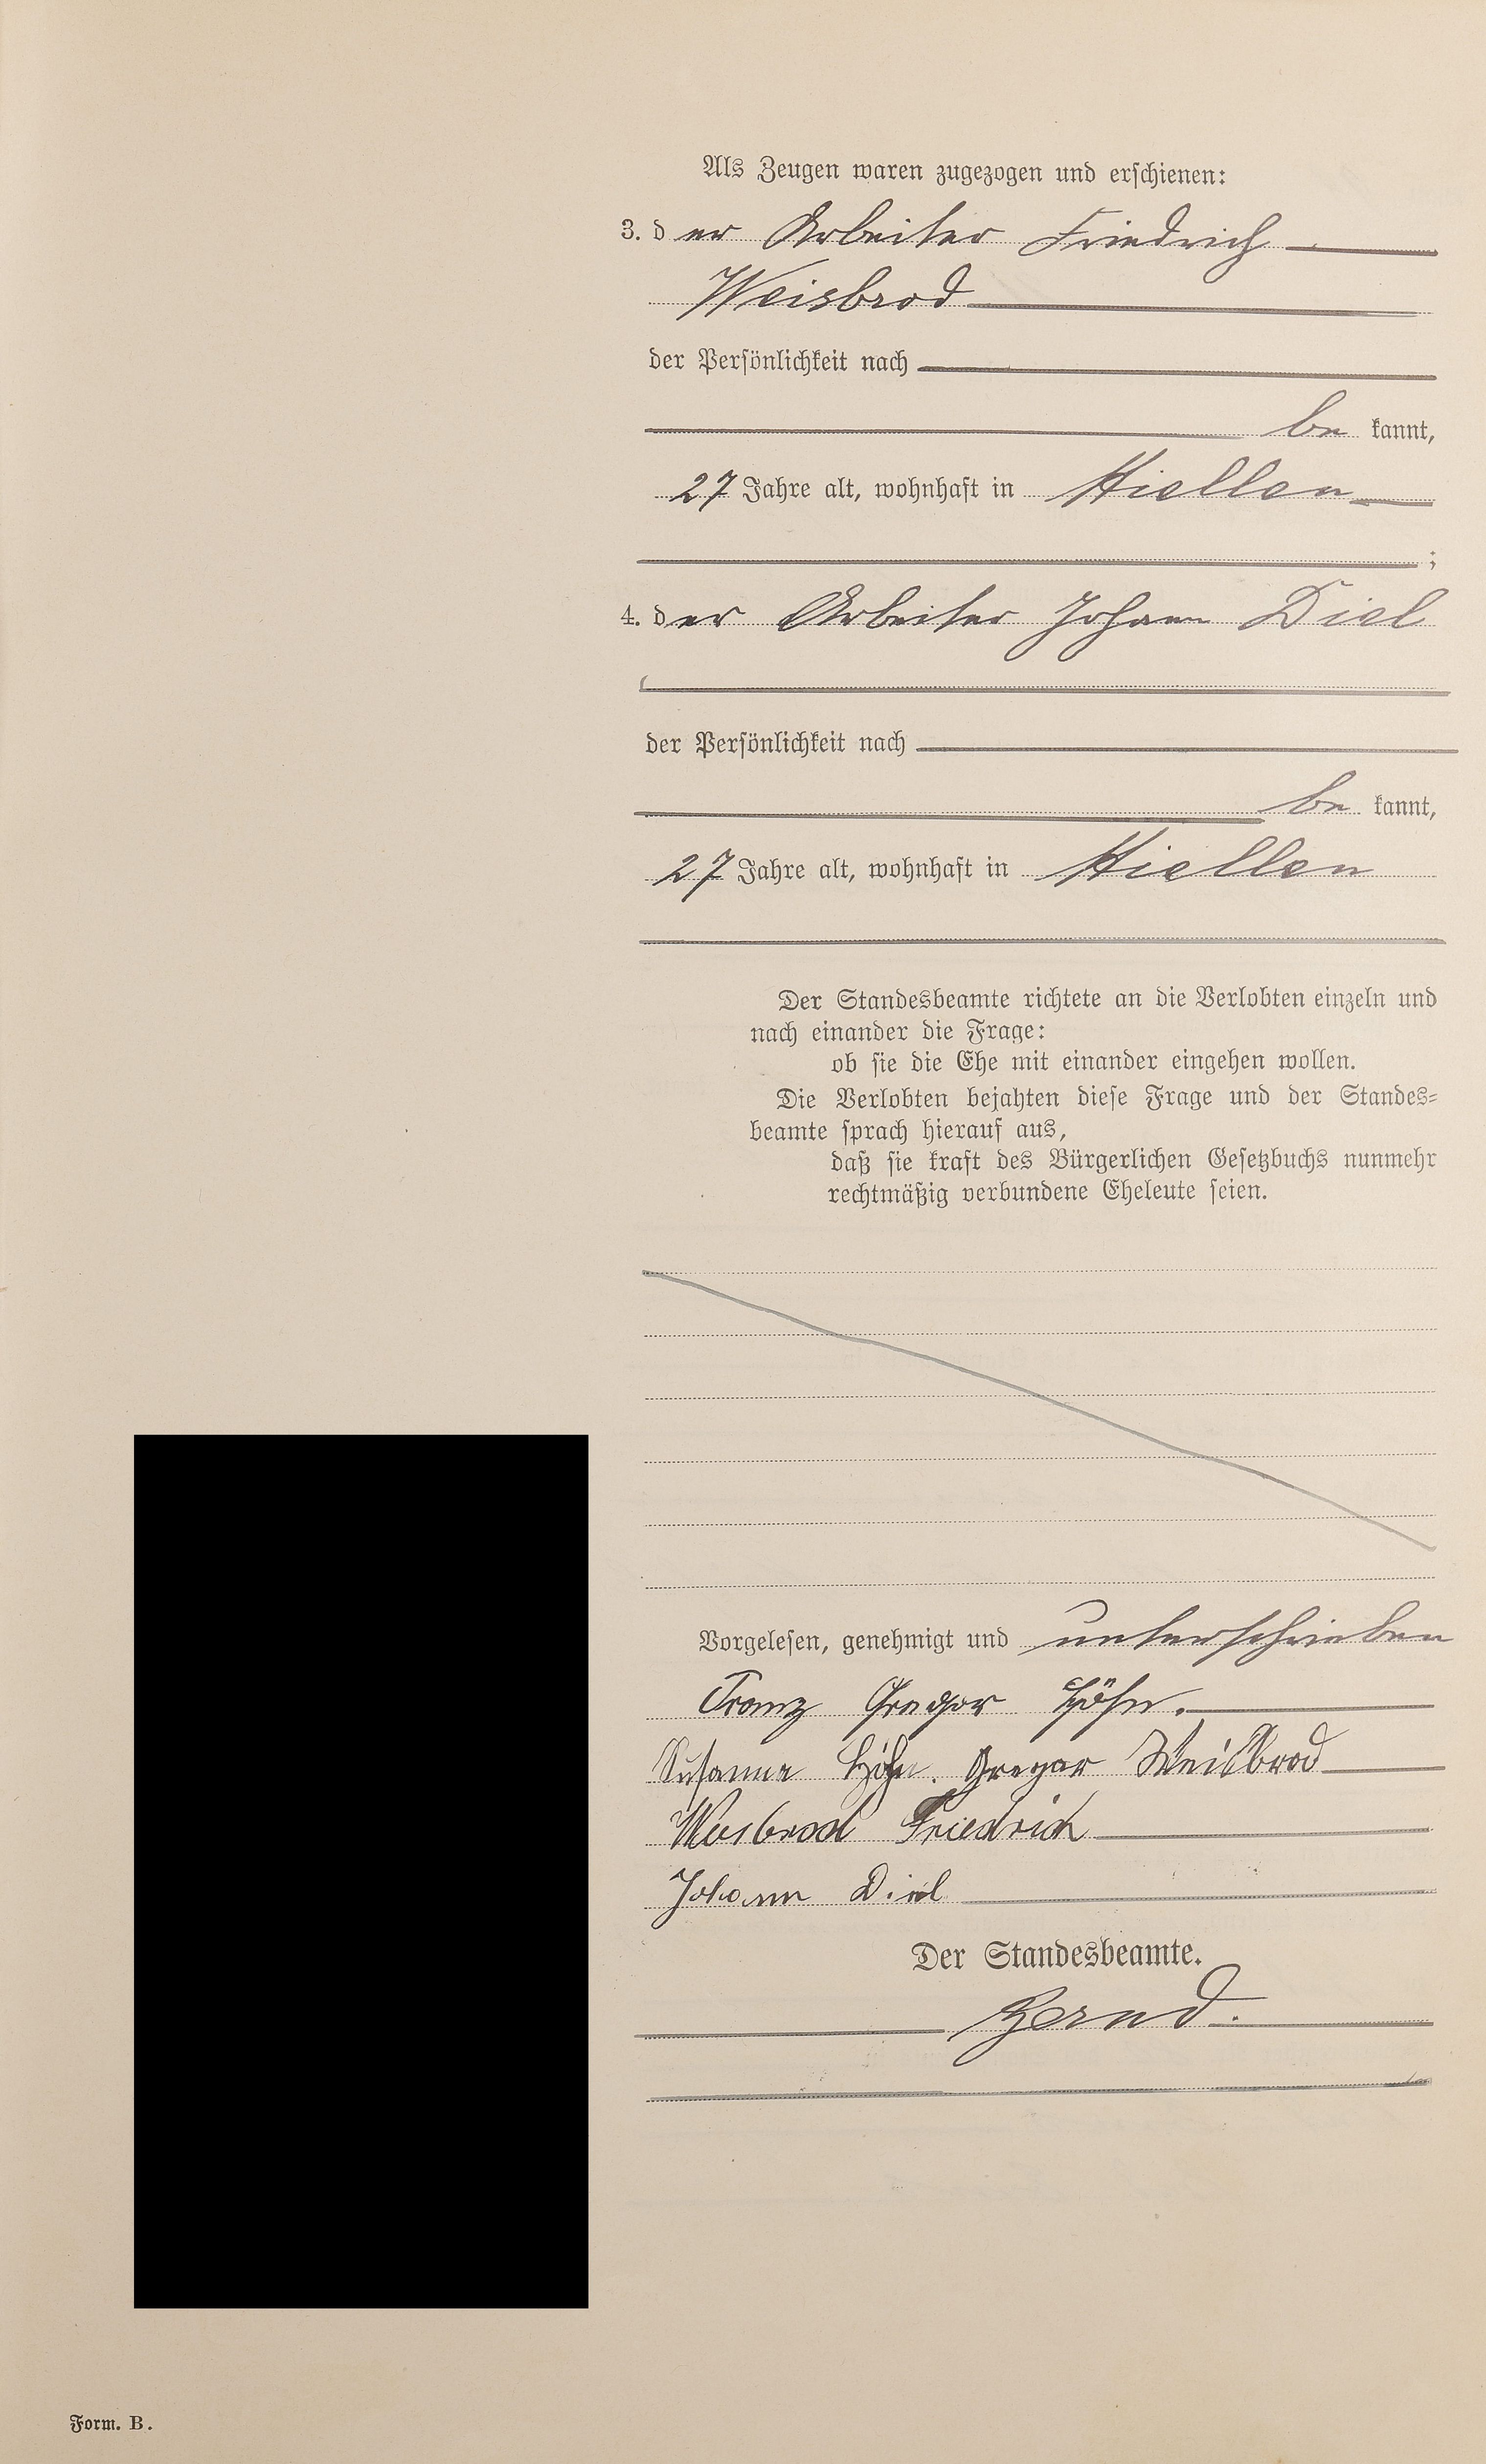 Als Zeugen waren zugezogen und erschienen:
3. der Arbeiter Friedrich
Weisbrod
der Persönlichkeit nach
be kannt,
27 Jahre alt, wohnhaft in Hiellen
;
4. der Arbeiter Johann Diel
der Persönlichkeit nach
be kannt,
27 Jahre alt, wohnhaft in Hiellen
Der Standesbeamte richtete an die Verlobten einzeln und
nach einander die Frage:
ob sie die Ehe mit einander eingehen wollen.
Die Verlobten bejahten diese Frage und der Standes-
beamte sprach hierauf aus,
daß sie kraft des Bürgerlichen Gesetzbuchs nunmehr
rechtmäßig verbundene Eheleute seien.
Vorgelesen, genehmigt und unterschrieben
Franz Gregor Höhn.
Susanna Höhn. Gregor Weisbrod
Weisbrod Friedrich
Johann Diel
Der Standesbeamte.
Form. B.